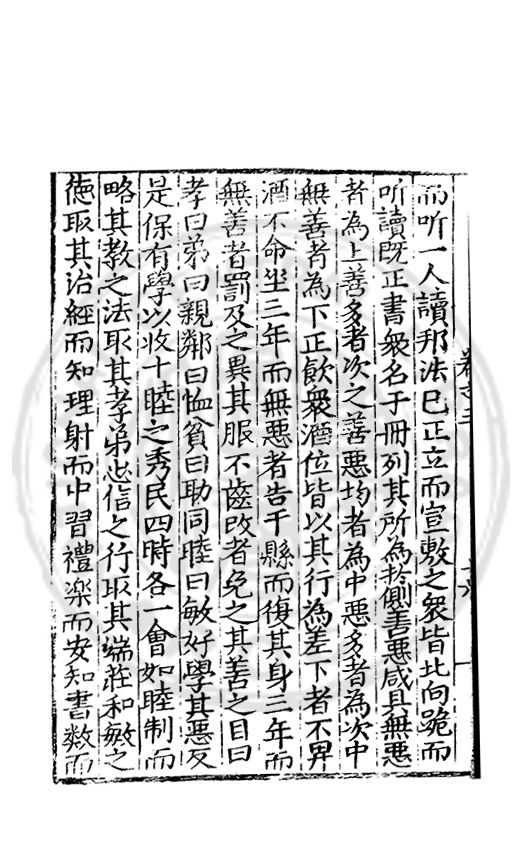 而听一人讀邦法已正立而宣敷之衆皆北向跪而
听讀既正書衆名于冊列其所為於側善惡咸具無惡
者為上善多者次之善惡均者為中惡多者為次中
無善者為下正飲衆酒位皆以其行為差下者不畀
酒不命坐三年而無惡者告于縣而復其身三年而
無善者罰及之異其服不齒改者免之其善之目曰
孝曰弟曰親鄰曰恤貧曰助同睦曰敏好學其惡反
是保有學以收十睦之秀民四時各一會如睦制而
略其教之法取其孝弟忠信之行取其端莊和敏之
徳取其治經而知理射而中習禮楽而安知書数而